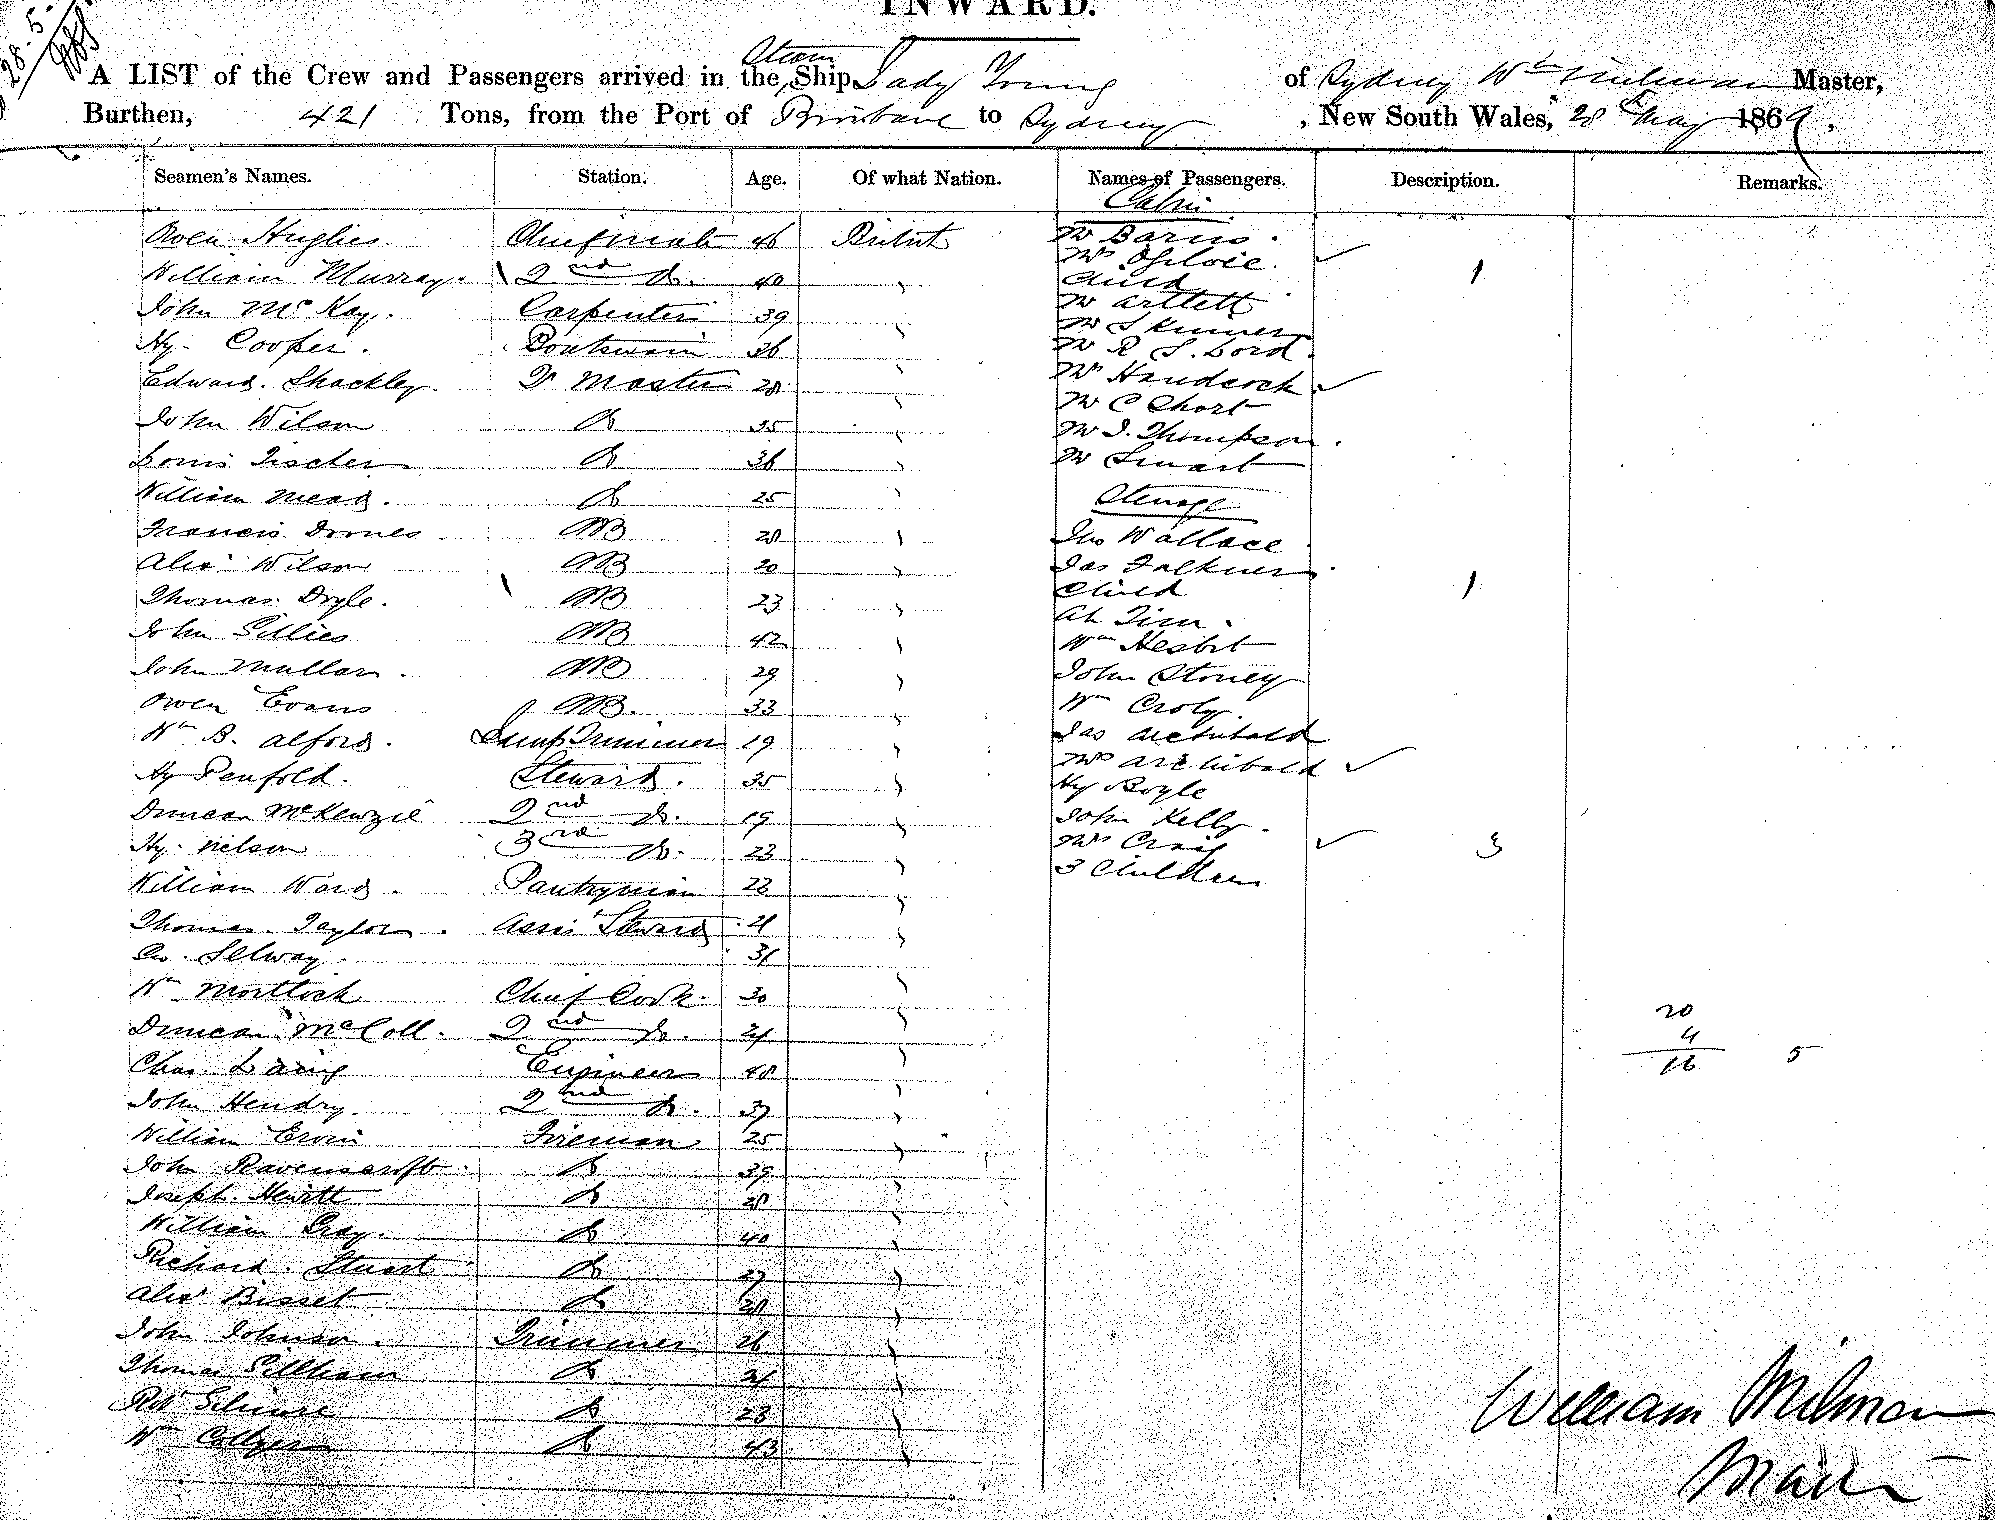 28.5.
INWARD.
Steam
A LIST of the Crew and Passengers arrived in the Ship Lady Young of Sydney Wm Milman Master,
Burthen, 421 Tons, from the Port of Brisbane to Sydney, New South Wales, 28th May 1869.
Seamen's Names. Station. Age. Of what Nation. Names of Passengers. Description. Remarks.
Cabin
Owen Hughes Chief mate 46 British
William Murray 2nd Do. 40 "
John McKay. Carpenter 39 "
Hy. Cooper. Boatswain 36 "
Edward Shackley Qr Master 28 "
John Wilson Do 35 "
Louis Fischer Do 36 "
William Mead. Do 25 "
Francis AB 28 "
Alexr Wilson AB 20 "
Thomas Doyle. AB 23 "
John Gillies AB 42 "
John Mullan. AB 29 "
Owen Evans AB. 33 "
Wm B. Alford. Lamp Trimmer 19 "
Hy Penfold. Steward. 35 "
Duncan McKenzie 2nd Do. 19 "
Hy. Nelson 3rd Do. 23 "
William Ward. Pantryman 22 "
Thomas Taylor. Assist Steward 21 "
Geo. Selway. 31 "
Wm Mortlock Chief Cook. 30 "
Duncan McColl. 2nd Do. 21 "
Chas. Laing Engineer 48 "
John Hendry. 2nd Do. 37 "
William Fireman 25 "
John Ravenscroft Do 39 "
Joseph Hewitt Do 28 "
William Gray. Do 40 "
Richard Stuart Do 27 "
Alexr Bisset Do 28 "
John Johnson. Trimmer 26 "
Thomas Do 21 "
Robt Gilmore Do 23 "
Wm Collyer Do 43 "
Mr Barns.
Mrs Ogilvie. ✓
Child 1
Mr Artlett
Mr Skinner
Mr R S. Lord.
Mrs Handcock ✓
Mr C Short
Mr J. Thompson.
Mr Smart
Steerage
Jno Wallace
Jas Falkner
Child 1
Ah Tim.
Wm Nesbit
John Stoney
Wm Croly.
Jas Archibald
Mrs Archibald ✓
Hy Boyle
John Kelly.
Mrs Craig ✓
3 Children 3
20
4
16 5
William Milman
Master